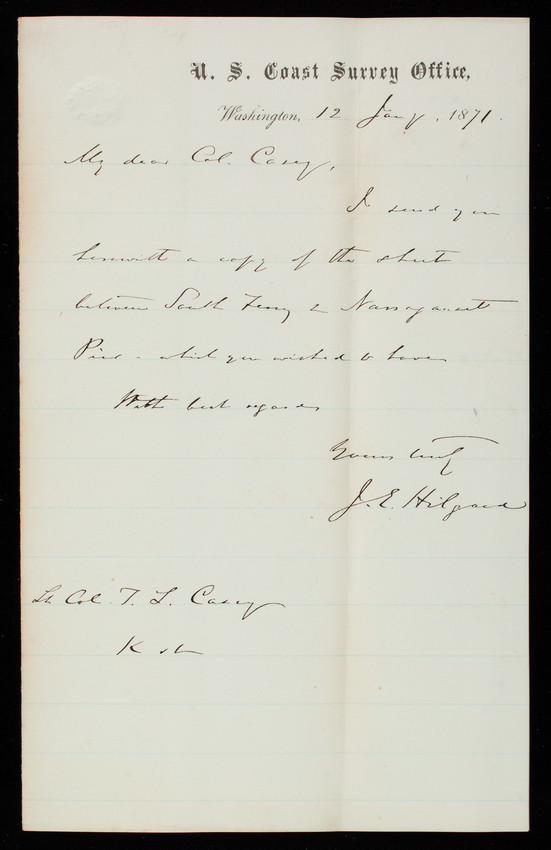 U. S. Coast Survey Office,
Washington, 12 Jany, 1871.
My dear Col. Casey,
I send you
herewith a copy of the sheet
between South Ferry & Narragansett
Pier - which you wished to have
With best regards
Yours truly
J. E. Hilgard
Lt Col. T. L. Casey
K St